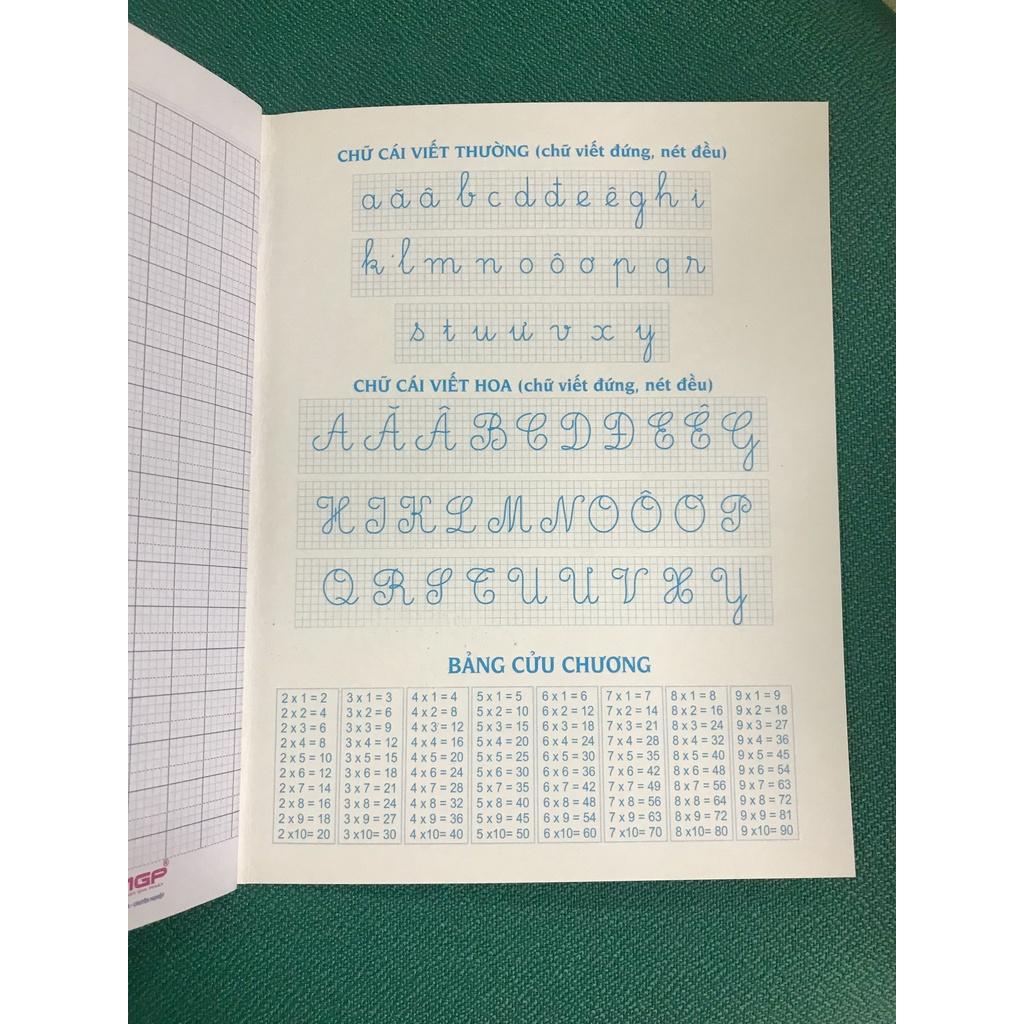 CHỮ CÁI VIẾT THƯỜNG (chữ viết đứng, nét đều)
a ă â b c d đ e ê g h i
k l m n o ô ơ p q r
s t u ư v x y
CHỮ CÁI VIẾT HOA (chữ viết đứng, nét đều)
A Ă Â B C D Đ E Ê G
H I K L M N O Ô Ơ P
Q R S T U Ư V X Y
BẢNG CỬU CHƯƠNG
2 x 1 = 2 3 x 1 = 3 4 x 1 = 4 5 x 1 = 5 6 x 1 = 6 7 x 1 = 7 8 x 1 = 8 9 x 1 = 9
2 x 2 = 4 3 x 2 = 6 4 x 2 = 8 5 x 2 = 10 6 x 2 = 12 7 x 2 = 14 8 x 2 = 16 9 x 2 = 18
2 x 3 = 6 3 x 3 = 9 4 x 3 = 12 5 x 3 = 15 6 x 3 = 18 7 x 3 = 21 8 x 3 = 24 9 x 3 = 27
2 x 4 = 8 3 x 4 = 12 4 x 4 = 16 5 x 4 = 20 6 x 4 = 24 7 x 4 = 28 8 x 4 = 32 9 x 4 = 36
2 x 5 = 10 3 x 5 = 15 4 x 5 = 20 5 x 5 = 25 6 x 5 = 30 7 x 5 = 35 8 x 5 = 40 9 x 5 = 45
2 x 6 = 12 3 x 6 = 18 4 x 6 = 24 5 x 6 = 30 6 x 6 = 36 7 x 6 = 42 8 x 6 = 48 9 x 6 = 54
2 x 7 = 14 3 x 7 = 21 4 x 7 = 28 5 x 7 = 35 6 x 7 = 42 7 x 7 = 49 8 x 7 = 56 9 x 7 = 63
2 x 8 = 16 3 x 8 = 24 4 x 8 = 32 5 x 8 = 40 6 x 8 = 48 7 x 8 = 56 8 x 8 = 64 9 x 8 = 72
2 x 9 = 18 3 x 9 = 27 4 x 9 = 36 5 x 9 = 45 6 x 9 = 54 7 x 9 = 63 8 x 9 = 72 9 x 9 = 81
2 x10= 20 3 x10= 30 4 x10= 40 5 x10= 50 6 x10= 60 7 x10= 70 8 x10= 80 9 x10= 90